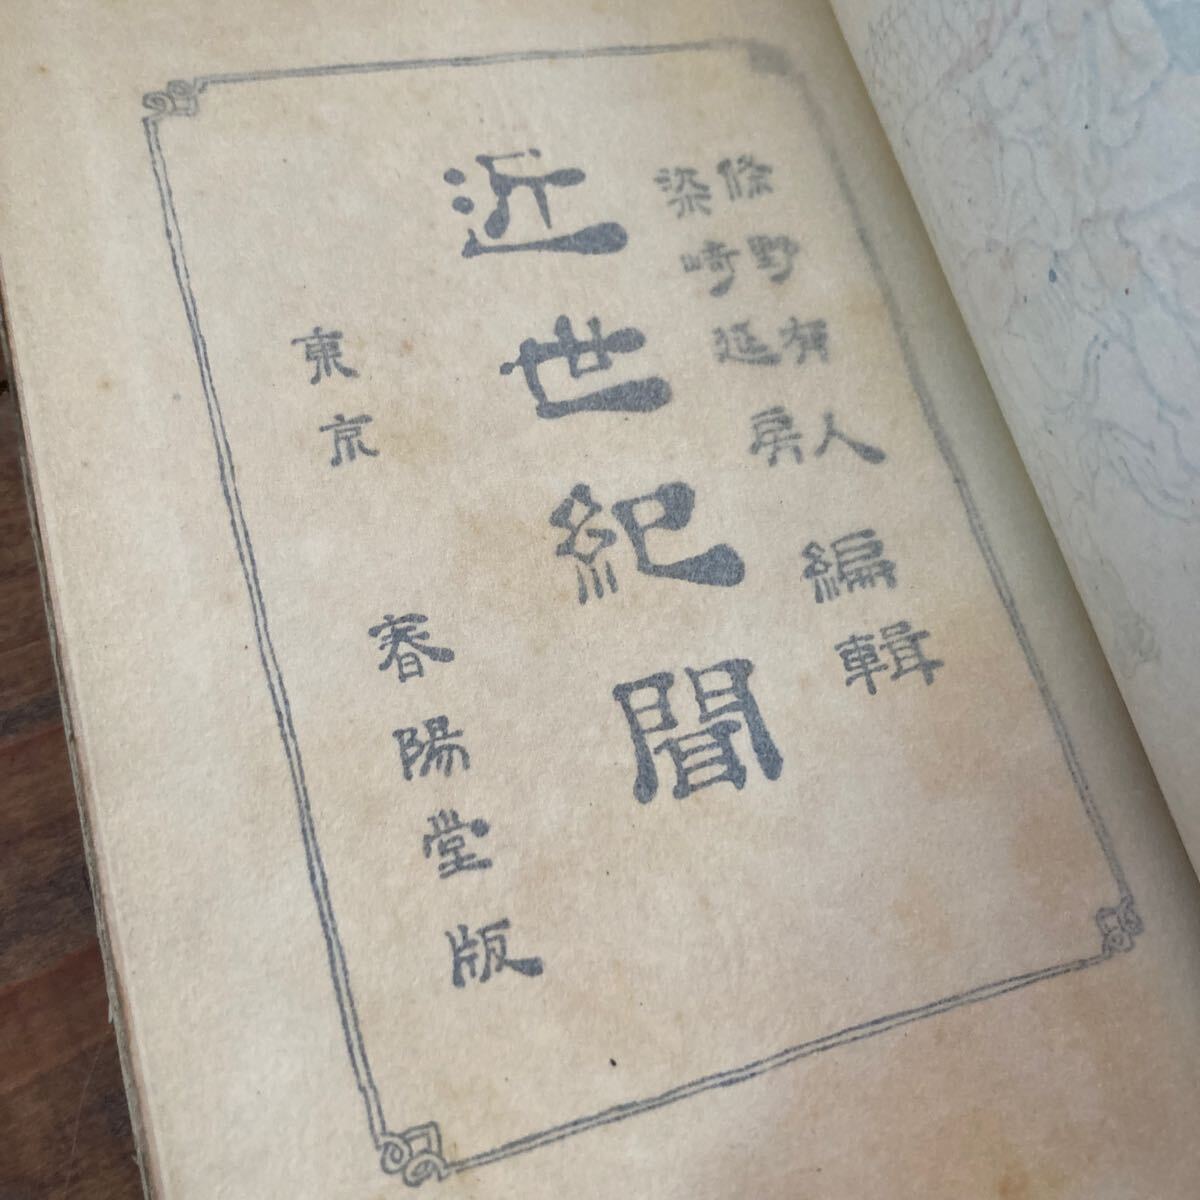 條野有人
染崎延房
編輯
近世紀聞
東京 春陽堂版